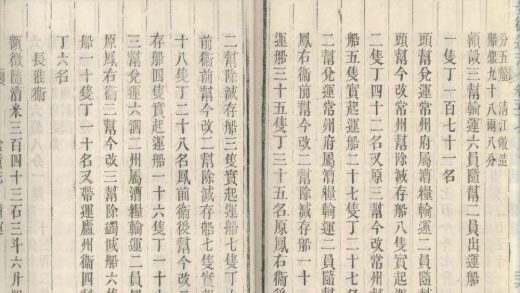 分五釐 清江廠造
船銀九十八兩八分
額設三幫輸運六員隨幫二員出運船
一隻丁一百七十一名
頭幫兌運常州府屬漕糧輸運二員隨
頭幫今改常州幫除減存船八隻實起
二隻丁四十二名又原三幫今改常州
船五隻實起運船二十七隻丁二十七
二幫兌運常州府屬漕糧輸運二員隨
鳳右衞前幫今改二幫除減存船一十
運船三十五隻丁三十五名原鳳右衞後
二幫除減存船三隻實起運船七隻丁七
前衞前幫今改二幫除減存船七隻實
十八隻丁二十八名鳳前衞後幫今改
存船四隻實起運船一十六隻丁一十
三幫兌運六泗二州屬漕糧輸運二員
原鳳右衞三幫今改三幫除減船六
船一十隻丁一十名又帶運廬州衞四
丁六名
長淮衞
額徵隨漕米三百四十三石三斗六升